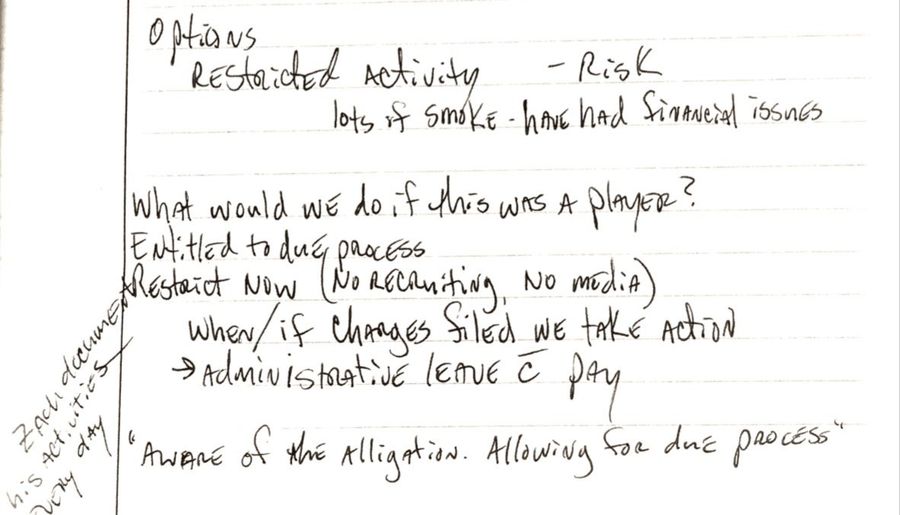 Options
Restricted Activity - Risk
lots if smoke - have had financial issues
What would we do if this was a player?
Entitled to due process
Restrict now (No recruiting, no media)
when/if charges filed we take action
→ Administrative leave c̅ pay
"Aware of the alligation. Allowing for due process"
Zach document
his activities
every day